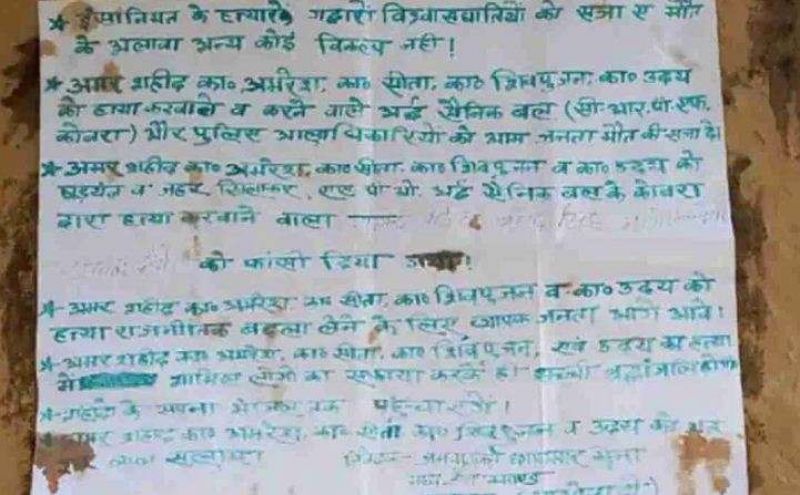 * इंसानियत के हत्यारे गद्दारो विश्वासघातियों को सजा ए मौत
के अलावा अन्य कोई विकल्प नही!
* अमर शहीद का० अमरेश, का० सीता, का० शिवपुजन, का० उदय
को हत्या करवाने व करने वाले अर्द्ध सैनिक बल (सी.आर.पी.एफ.
कोबरा) और पुलिस आला धिकारियो को आम जनता मौत की सजा दे।
* अमर शहीद का० अमरेश, का० सीता, का० शिवपुजन व का० उदय को
षडयंत्र व जहर खिलाकर, एस पी ओ, अर्द्ध सैनिक बल के कोबरा
द्वारा हत्या करवाने वाला
को फांसी दिया
* अमर शहीद का० अमरेश, का० सीता, का० शिवपुजन व का० उदय को
हत्या राजनीतिक बदला लेने के लिए व्यापक जनता आगे आवे।
* अमर शहीद का० अमरेश, का० सीता, का० शिवपुजन, एवं उदय का हत्या
मे शामिल लोगो का सफाया करके ही सच्ची श्रद्धांजलि
के सपना
अमर शहीद का० अमरेश, का० सीता, का० शिवपुजन व उदय को
लाल सलाम।